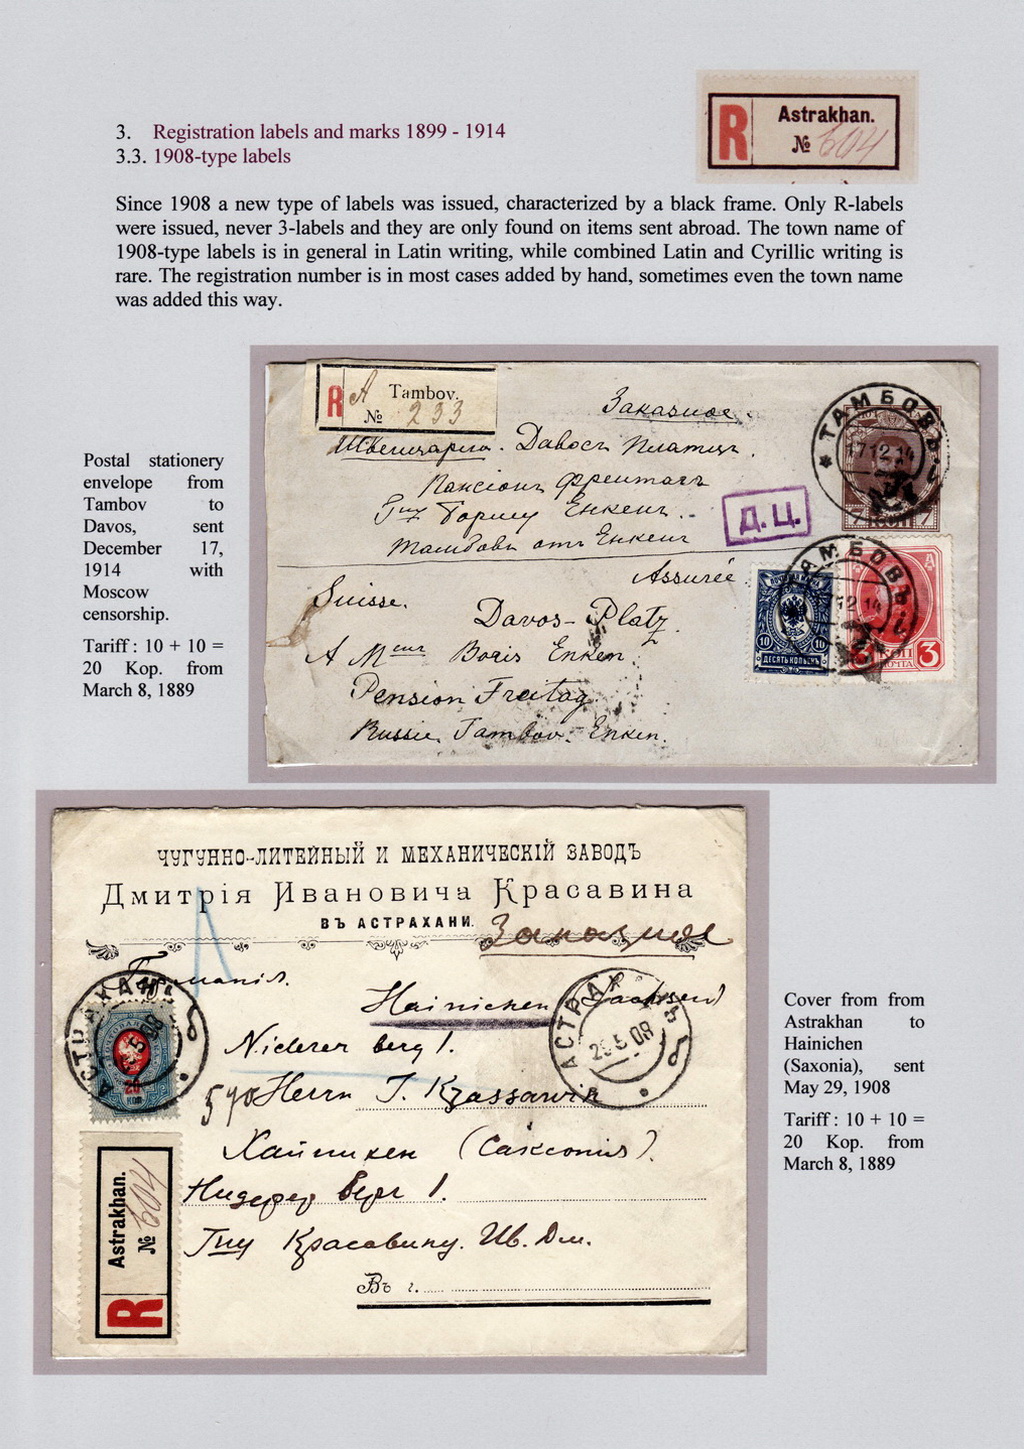 3. Registration labels and marks 1899 - 1914
3.3. 1908-type labels
R Astrakhan.
№ 604
Since 1908 a new type of labels was issued, characterized by a black frame. Only R-labels
were issued, never 3-labels and they are only found on items sent abroad. The town name of
1908-type labels is in general in Latin writing, while combined Latin and Cyrillic writing is
rare. The registration number is in most cases added by hand, sometimes even the town name
was added this way.
Postal stationery
envelope from
Tambov to
Davos, sent
December 17,
1914 with
Moscow
censorship.
Tariff : 10 + 10 =
20 Kop. from
March 8, 1889
R A Tambov.
№ 233
Заказное
Швейцария. Давосъ Платцъ.
Пансіонъ Фрейтагъ
Гну Борису Енкенъ.
Тамбовъ отъ Енкенъ
Assurée
Suisse.
Davos-Platz.
A Meur Boris Enken.
Pension Freitag
Russie Tambov. Enken.
Д.Ц.
ТАМБОВЪ
17 12 14
7 КОП 7
ТАМБОВЪ
12 14
10 10
ДЕСЯТЬ КОПѢЕКЪ
3 КОП 3
ПОЧТА
ЧУГУННО-ЛИТЕЙНЫЙ И МЕХАНИЧЕСКІЙ ЗАВОДЪ
Дмитрія Ивановича Красавина
ВЪ АСТРАХАНИ.
Заказное
Германія.
Hainichen (Sachsen)
Niederer berg 1.
590 Herrn J. Krassawin
Хайникен (Саксонія).
Нидерер берг 1.
Гну Красавину. Ив. Дм.
Въ г.
АСТРАХАНЬ
5 08
20
КОП
АСТРАХАНЬ
29 5 08
R Astrakhan.
№ 604
Cover from from
Astrakhan to
Hainichen
(Saxonia), sent
May 29, 1908
Tariff : 10 + 10 =
20 Kop. from
March 8, 1889